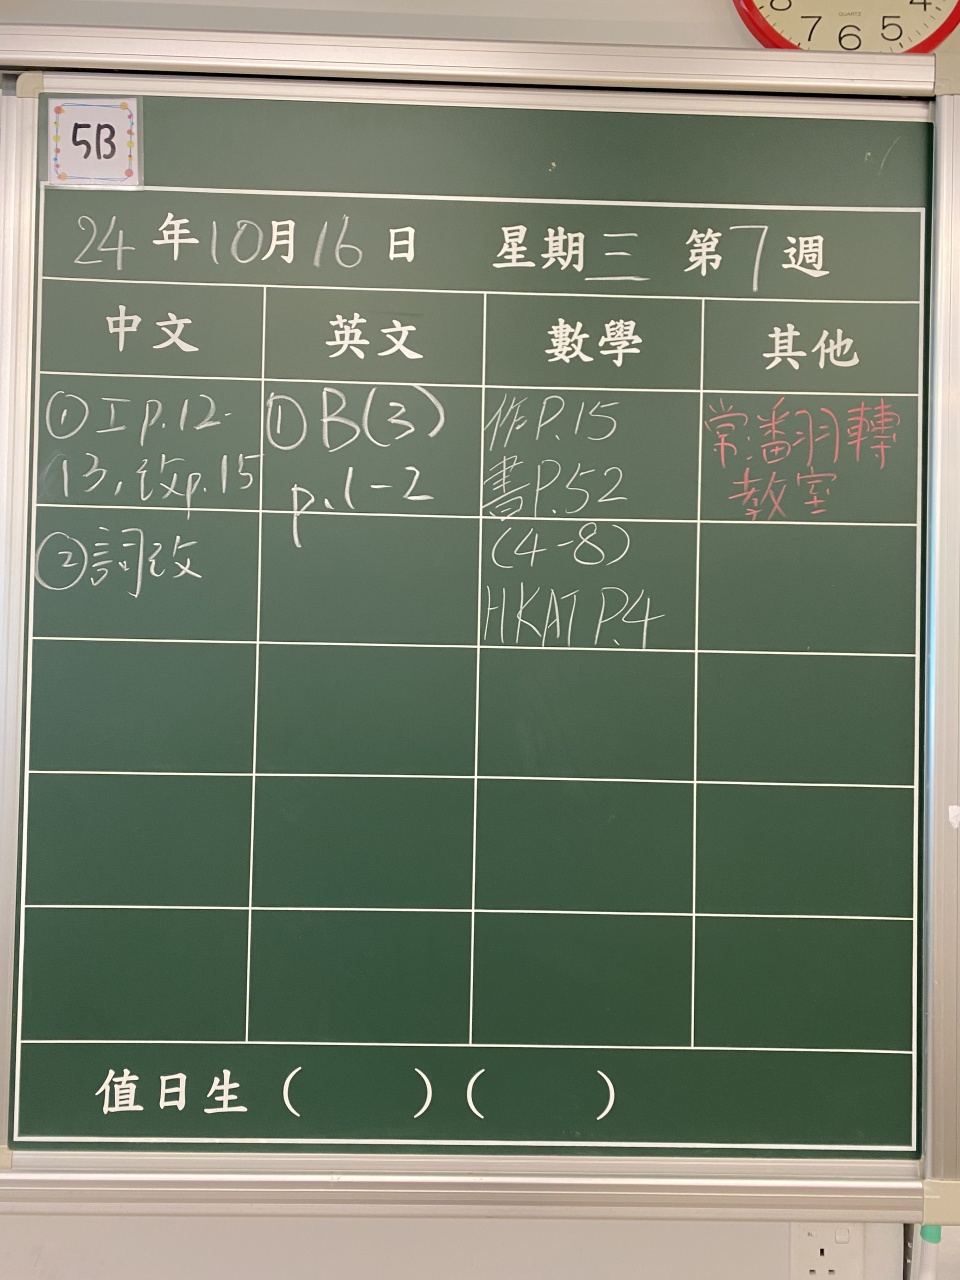 8 7 6 5 4
QUARTZ
5B
24年10月16日 星期三 第7週
中文 英文 數學 其他
①工p.12-
13,改p.15
②詞改
①B(3)
p.1-2
作P.15
書P.52
(4-8)
HKAT P.4
常:潘羽轉
教室
值日生 ( ) ( )